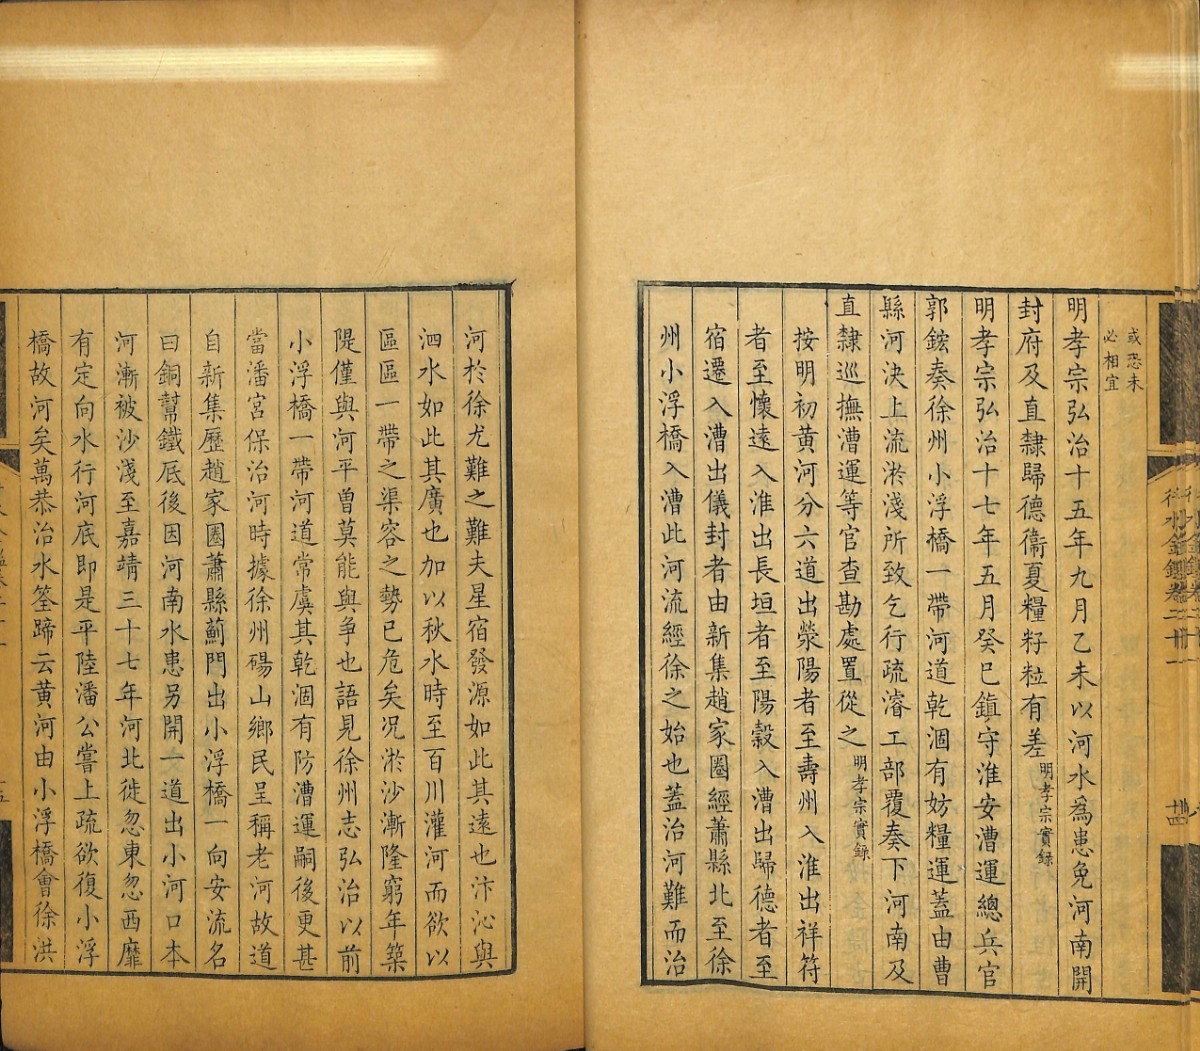 或恐未
必相宜
明孝宗弘治十五年九月乙未以河水為患免河南開
封府及直隸歸德衞夏糧籽粒有差明孝宗實錄
明孝宗弘治十七年五月癸巳鎮守淮安漕運總兵官
郭鋐奏徐州小浮橋一帶河道乾涸有妨糧運蓋由曹
縣河決上流淤淺所致乞行疏濬工部覆奏下河南及
直隸巡撫漕運等官查勘處置從之明孝宗實錄
按明初黃河分六道出滎陽者至壽州入淮出祥符
者至懷遠入淮出長垣者至陽穀入漕出歸德者至
宿遷入漕出儀封者由新集趙家圈經蕭縣北至徐
州小浮橋入漕此河流經徐之始也蓋治河難而治
河於徐尤難之難夫星宿發源如此其遠也汴沁與
泗水如此其廣也加以秋水時至百川灌河而欲以
區區一帶之渠容之勢已危矣况淤沙漸隆窮年築
隄僅與河平曾莫能與争也語見徐州志弘治以前
小浮橋一帶河道常虞其乾涸有防漕運嗣後更甚
當潘宮保治河時據徐州碭山鄉民呈稱老河故道
自新集歷趙家圈蕭縣薊門出小浮橋一向安流名
曰銅幫鐵底後因河南水患另開一道出小河口本
河漸被沙淺至嘉靖三十七年河北徙忽東忽西靡
有定向水行河底即是平陸潘公嘗上疏欲復小浮
橋故河矣萬恭治水筌蹄云黃河由小浮橋會徐洪